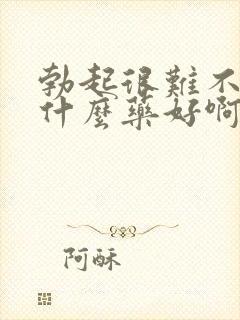 勃起很難不
什麼藥好啊
阿酥